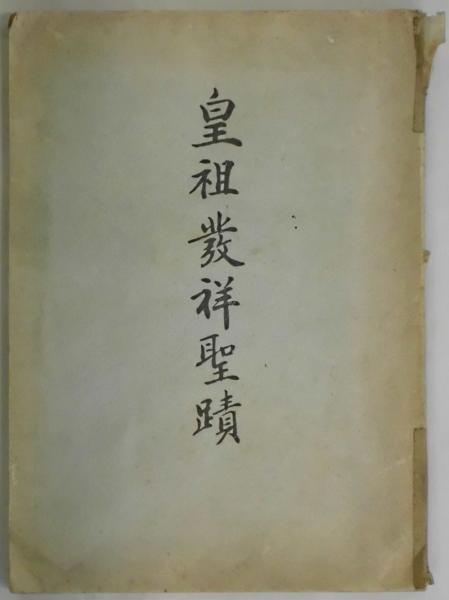 皇祖發祥聖蹟